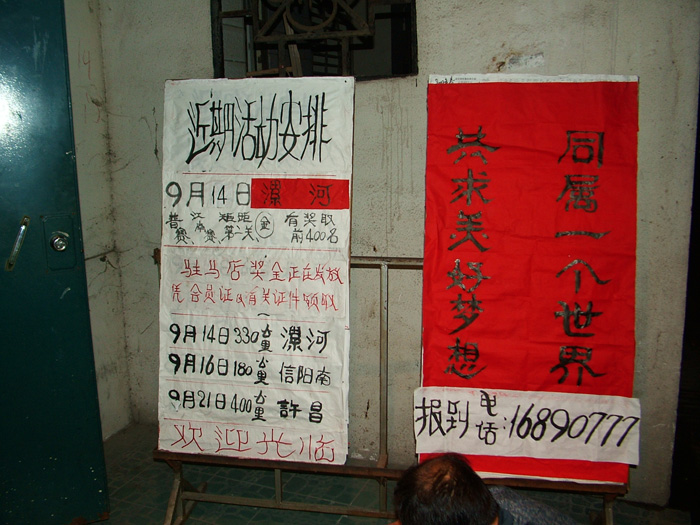 近期活动安排
9月14日 漯河
普赛、江南赛、短距第一关 金 有奖取前400名
驻马店奖金正在发放
凭会员证及有关证件领取
9月14日330公里漯河
9月16日180公里信阳南
9月21日400公里許昌
欢迎光临
同属一个世界
共求美好梦想
报到电话:16890777